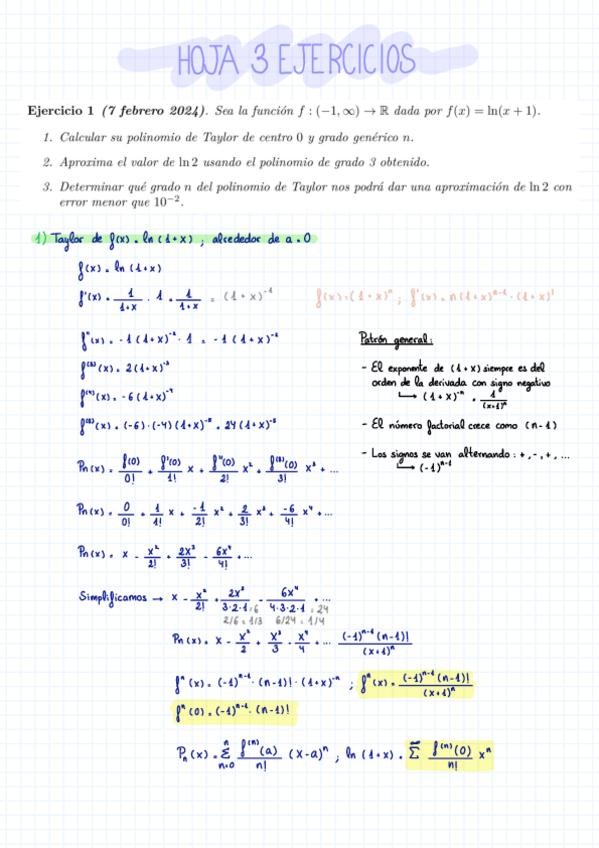 HOJA 3 EJERCICIOS
Ejercicio 1 (7 febrero 2024). Sea la función f : (−1, ∞) → ℝ dada por f(x) = ln(x + 1).
1. Calcular su polinomio de Taylor de centro 0 y grado genérico n.
2. Aproxima el valor de ln 2 usando el polinomio de grado 3 obtenido.
3. Determinar qué grado n del polinomio de Taylor nos podrá dar una aproximación de ln 2 con
error menor que 10⁻².
1) Taylor de f(x) = ln (1+x) ; alrededor de a = 0
f(x) = ln (1+x)
f'(x) = 1/(1+x) · 1 = 1/(1+x) = (1+x)⁻¹
f(x) = (1+x)ⁿ ; f'(x) = n(1+x)ⁿ⁻¹ · (1+x)'
f''(x) = -1 (1+x)⁻² · 1 = -1 (1+x)⁻²
f⁽³⁾(x) = 2(1+x)⁻³
f⁽⁴⁾(x) = -6(1+x)⁻⁴
f⁽⁵⁾(x) = (-6)·(-4)(1+x)⁻⁵ = 24(1+x)⁻⁵
Patrón general:
- El exponente de (1+x) siempre es del
orden de la derivada con signo negativo
↳ (1+x)⁻ⁿ = 1/(x+1)ⁿ
- El número factorial crece como (n-1)
- Los signos se van alternando: +, -, +, ...
↳ (-1)ⁿ⁻¹
Pn(x) = f(0)/0! + f'(0)/1! x + f''(0)/2! x² + f⁽³⁾(0)/3! x³ + ...
Pn(x) = 0/0! + 1/1! x + -1/2! x² + 2/3! x³ + -6/4! x⁴ + ...
Pn(x) = x - x²/2! + 2x³/3! - 6x⁴/4! + ...
Simplificamos → x - x²/2! + 2x³/3·2·1=6 - 6x⁴/4·3·2·1=24 + ...
2/6 = 1/3 6/24 = 1/4
Pn(x) = x - x²/2 + x³/3 - x⁴/4 + ... (-1)ⁿ⁻¹(n-1)!/(x+1)ⁿ
fⁿ(x) = (-1)ⁿ⁻¹ · (n-1)! · (1+x)⁻ⁿ ; fⁿ(x) = (-1)ⁿ⁻¹(n-1)!/(x+1)ⁿ
fⁿ(0) = (-1)ⁿ⁻¹ · (n-1)!
Pₙ(x) = Σ n=0 n f⁽ⁿ⁾(a)/n! (x-a)ⁿ ; ln (1+x) = Σ f⁽ⁿ⁾(0)/n! xⁿ